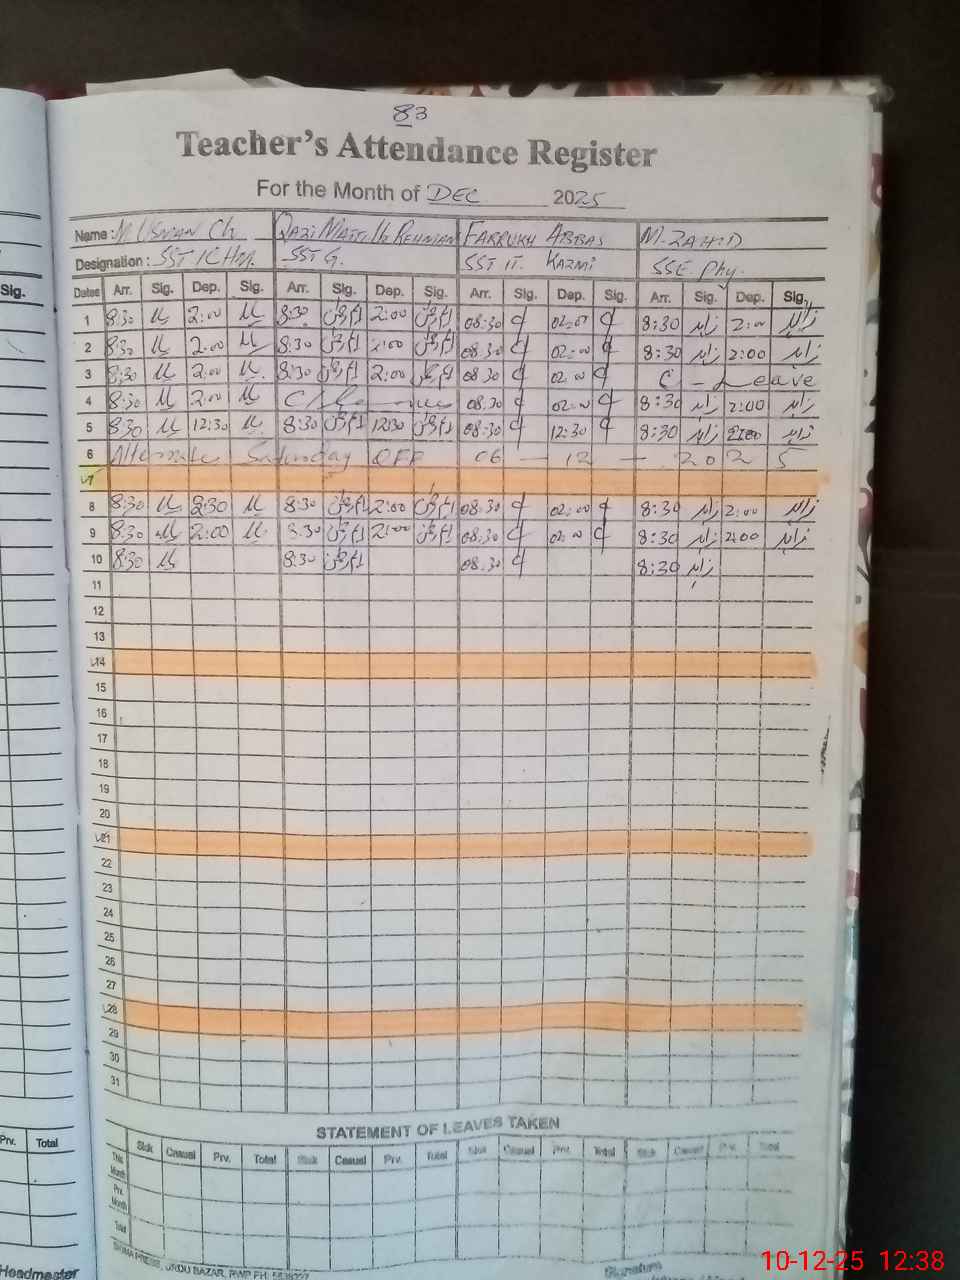 83
Teacher's Attendance Register
For the Month of DEC 2025
Name: M. Usman Ch Qazi Rehman FARRUKH ABBAS M. ZAHID
Designation: SST ICHM. SST G. SST IT. KAZMI SSE. Phy.
Sig.
Dates Arr. Sig. Dep. Sig. Arr. Sig. Dep. Sig. Arr. Sig. Dep. Sig. Arr. Sig. Dep. Sig.
1 8:30 2:00 8:30 2:00 08:30 02:00 8:30 زاہد 2:00 زاہد
2 8:30 2:00 8:30 2:00 08:30 02:00 8:30 زاہد 2:00 زاہد
3 8:30 2:00 8:30 2:00 08:30 02:00 C - Leave
4 8:30 2:00 C/Leave 08:30 02:00 8:30 زاہد 2:00 زاہد
5 8:30 12:30 8:30 12:30 08:30 12:30 8:30 زاہد زاہد
6 Alternate Saturday OFF 06 - 12 - 2025
7
8 8:30 2:30 8:30 2:00 08:30 02:00 8:30 زاہد 2:00 زاہد
9 8:30 2:00 8:30 2:00 08:30 02:00 8:30 زاہد 2:00 زاہد
10 8:30 8:30 08:30 8:30 زاہد
11
12
13
14
15
16
17
18
19
20
21
22
23
24
25
26
27
28
29
30
31
STATEMENT OF LEAVES TAKEN
Prv. Total
Sick Casual Prv. Total Sick Casual Prv. Total Sick Casual Prv. Total Sick Casual Prv. Total
This Month
Prv. Month
Total
Headmaster
PRESS, URDU BAZAR, RWP PH:
Signature
10-12-25 12:38